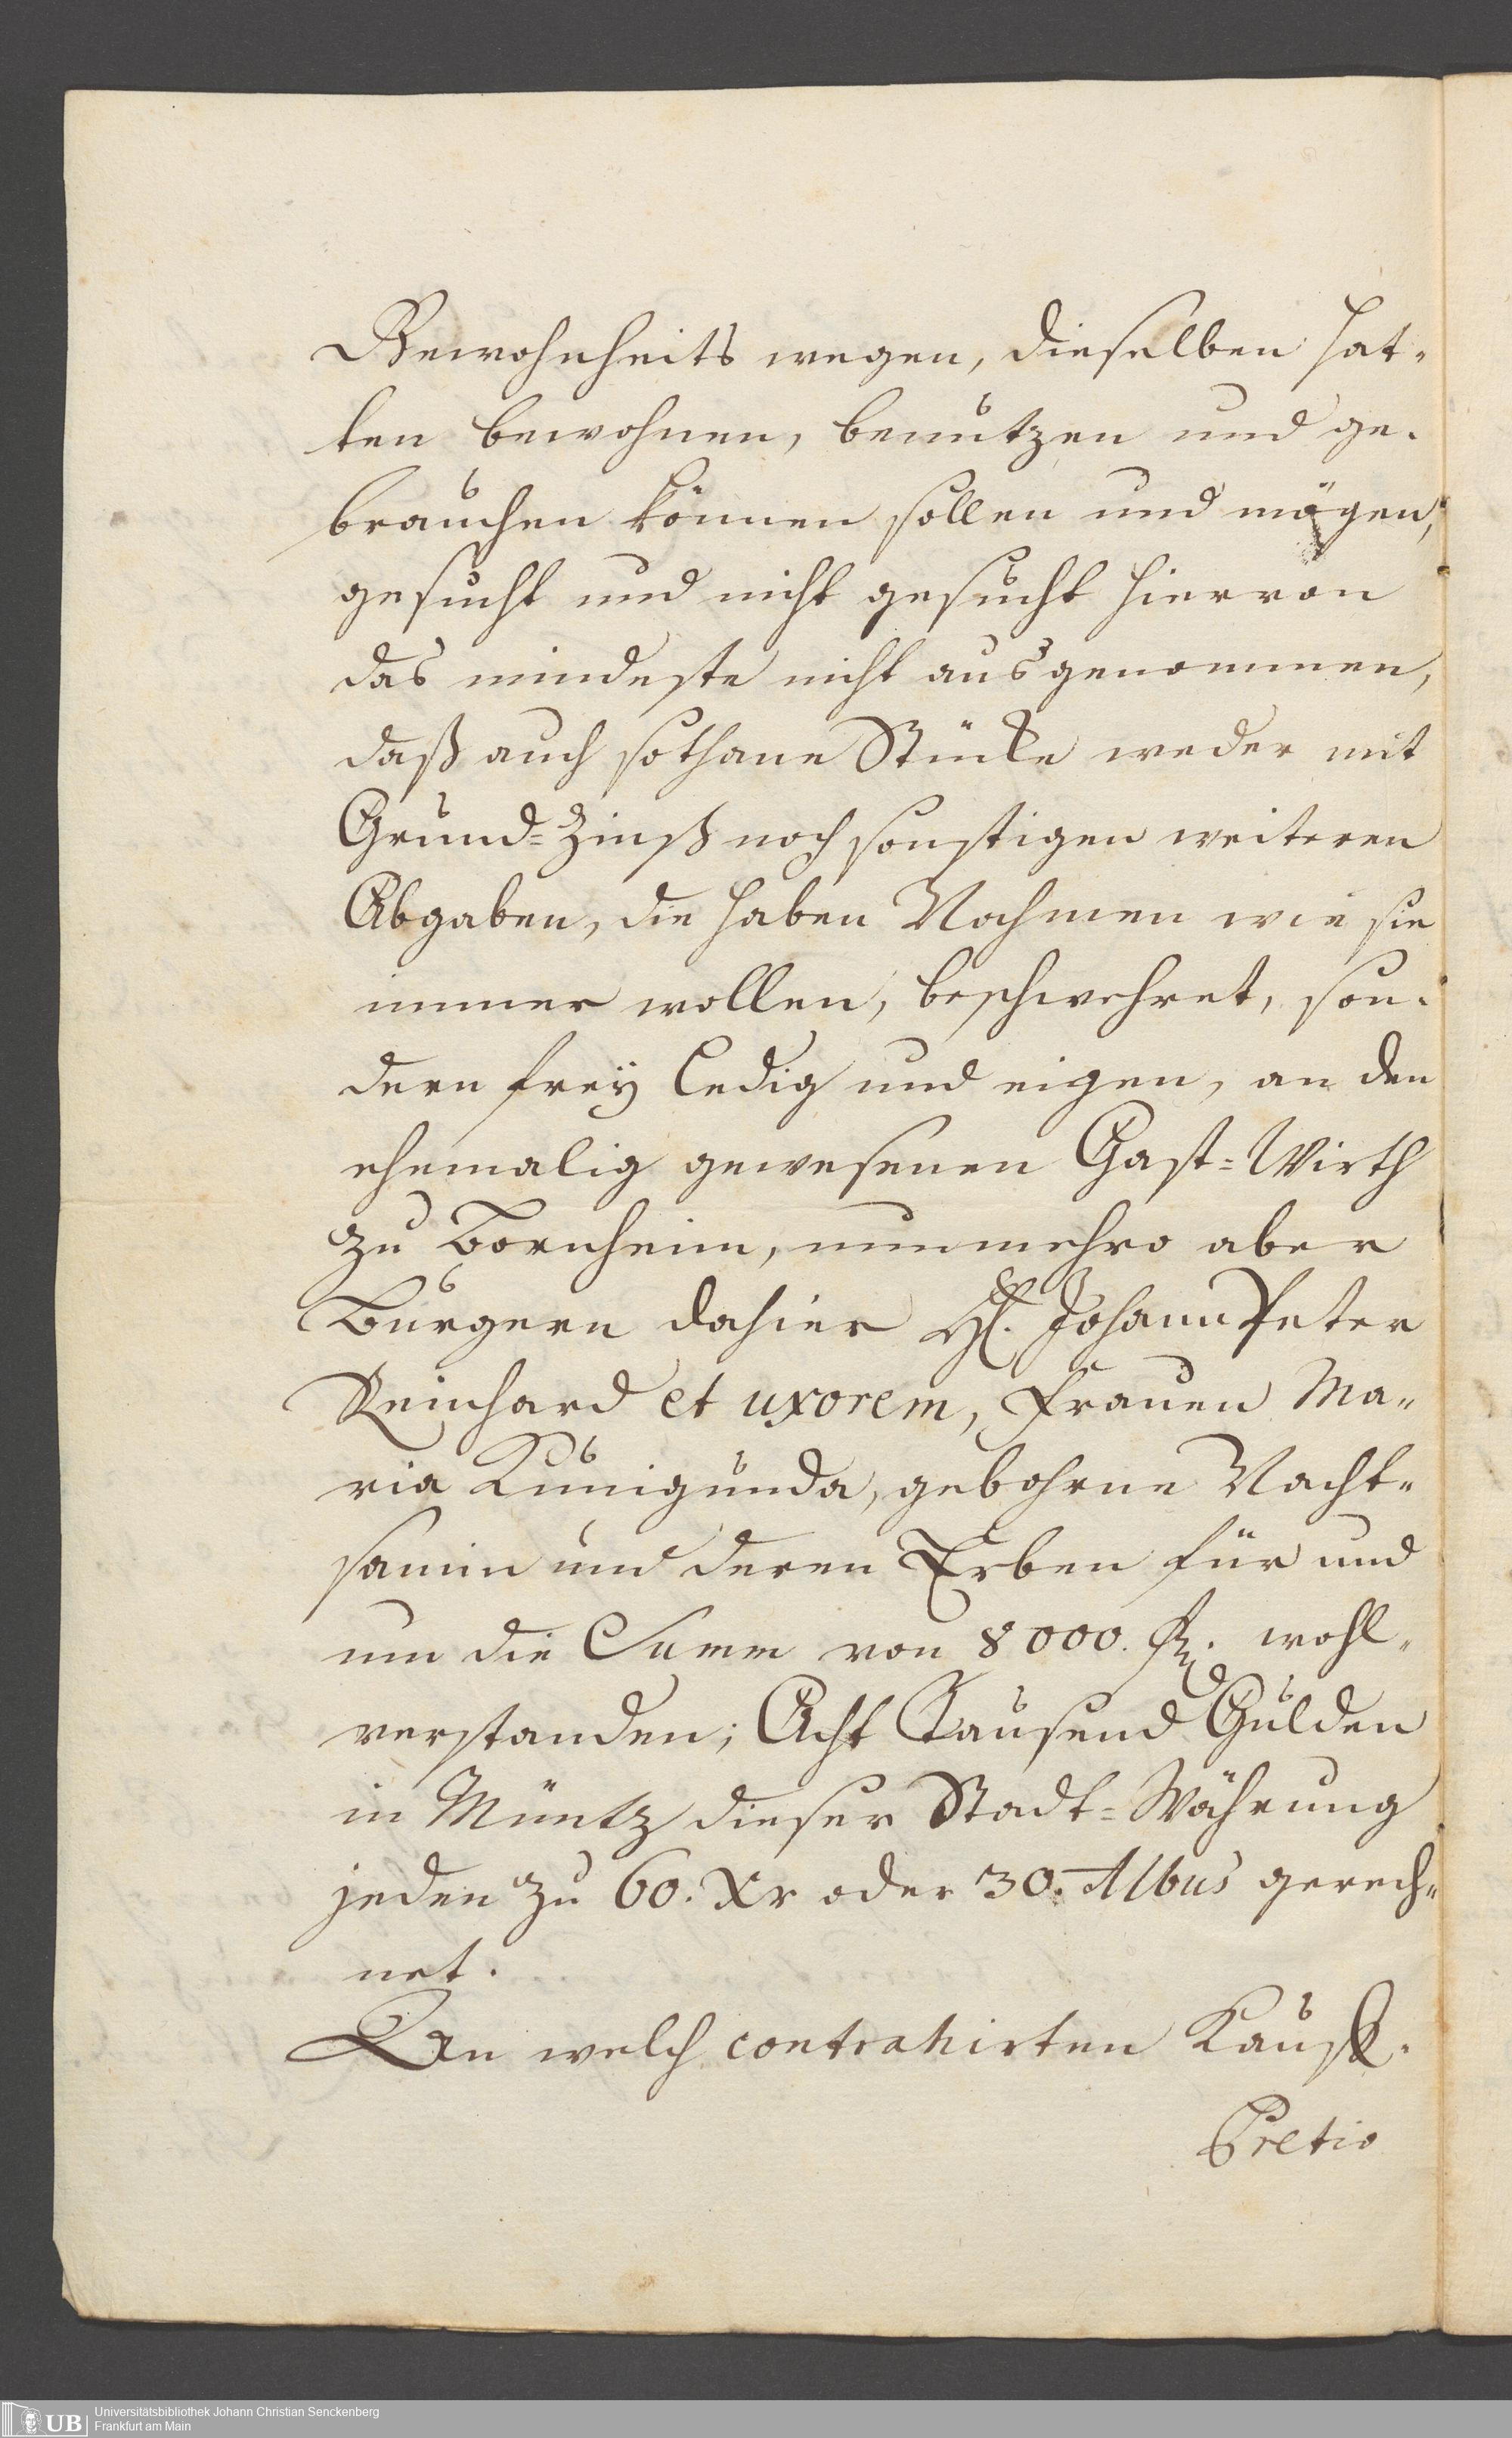 Gewohnheits wegen, dieselben hat-
ten bewohnen, benutzen und ge-
brauchen können sollen und mögen,
gesucht und nicht gesucht hiervon
das mindeste nicht ausgenommen,
daß auch sothane Stücke weder mit
Grund=Zinß noch sonstigen weiteren
Abgaben, die haben Nahmen wie sie
immer wollen, beschwehret, son-
dern frey ledig und eigen, an den
ehemalig gewesenen Gast=Wirth
zu Bornheim, nunmehro aber
Burgern dahier H. Johann Peter
Reinhard et uxorem, Frauen Ma-
ria Kunigunda, gebohrne Nacht-
samin und deren Erben für und
um die Summ von 8000. fl. wohl-
verstanden; Acht Tausend Gulden
in Müntz dieser Stadt=Währung
jeden zu 60. Xr oder 30. Albus gerech-
net.
An welch contrahirten Kauff-
Pretio
UB Universitätsbibliothek Johann Christian Senckenberg
Frankfurt am Main